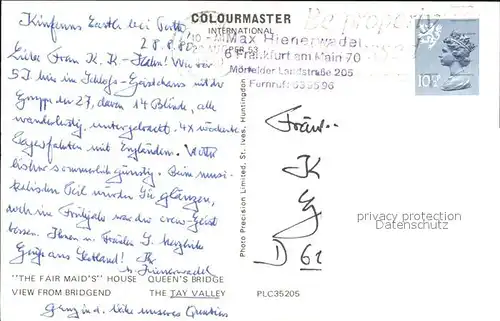 Kinfauns Castle bei Perth
28.8.80
Liebe Frau K. K.-Jahn! Wir
5 J. hier im Schloss-Gästehaus mit der
Gruppe von 27, davon 14 Blinde, alle
wanderlustig, untergebracht. 4x
Tagesfahrten mit Engländern. Wetter
bisher sommerlich günstig. Beim musi-
kalischen Teil würden Sie glänzen,
noch im Frühjahr war der crew-Geist
besser. Ihnen u. Fräulein J. herzliche
Grüsse aus Scotland! Ihr
M. Hienerwadel
"THE FAIR MAID'S" HOUSE QUEEN'S BRIDGE
VIEW FROM BRIDGEND THE TAY VALLEY
Ganz in d. Nähe unseres Quartiers
COLOURMASTER
INTERNATIONAL
Max Hienerwadel
6 Frankfurt am Main 70
Mörfelder Landstraße 205
Fernruf: 639596
Be properly
10½P
Photo Precision Limited, St. Ives, Huntingdon
Frau
K
G
D 61
privacy protection
Datenschutz
PLC35205